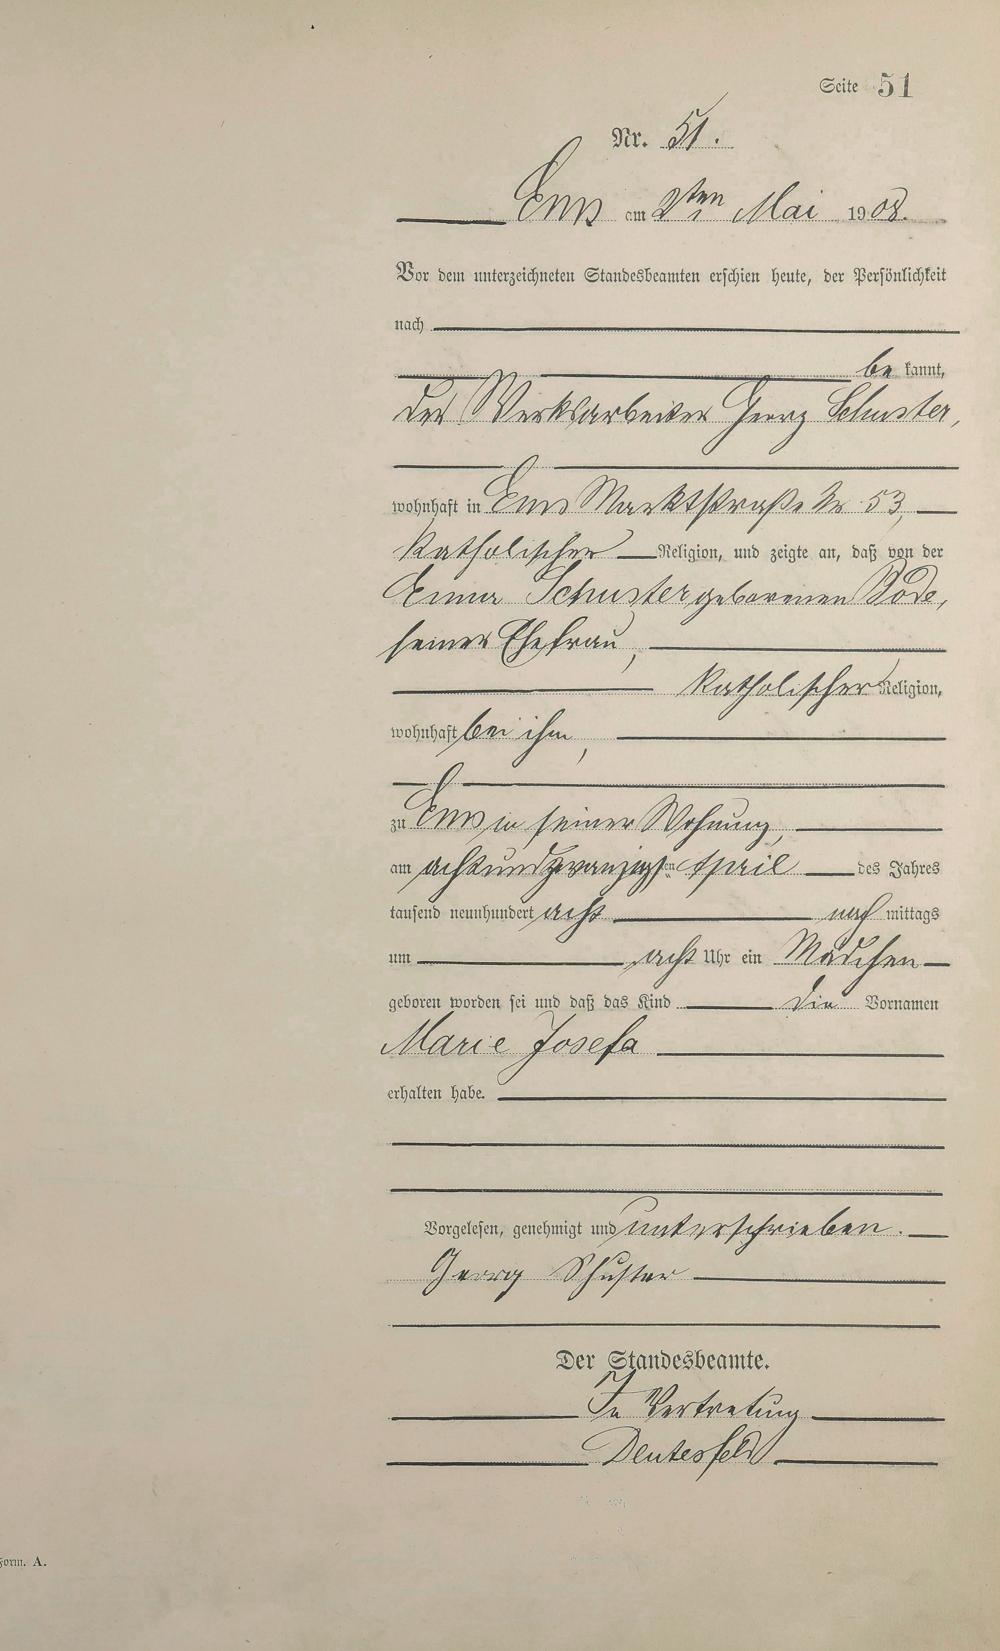 Seite 51
Nr. 51.
Ems am 2ten Mai 1908.
Vor dem unterzeichneten Standesbeamten erschien heute, der Persönlichkeit
nach
be kannt,
der Werksarbeiter Georg Schuster,
wohnhaft in Ems Marktstraße Nr 53,
katholischer Religion, und zeigte an, daß von der
Schuster geborenen Bode,
seiner Ehefrau,
katholischer Religion,
wohnhaft bei ihm,
zu Ems in seiner Wohnung,
am achtundzwanzigsten April des Jahres
tausend neunhundert acht nach mittags
um acht Uhr ein Mädchen
geboren worden sei und daß das Kind die Vornamen
Marie Josefa
erhalten habe.
Vorgelesen, genehmigt und unterschrieben.
Georg Schuster
Der Standesbeamte.
In Vertretung
Form. A.